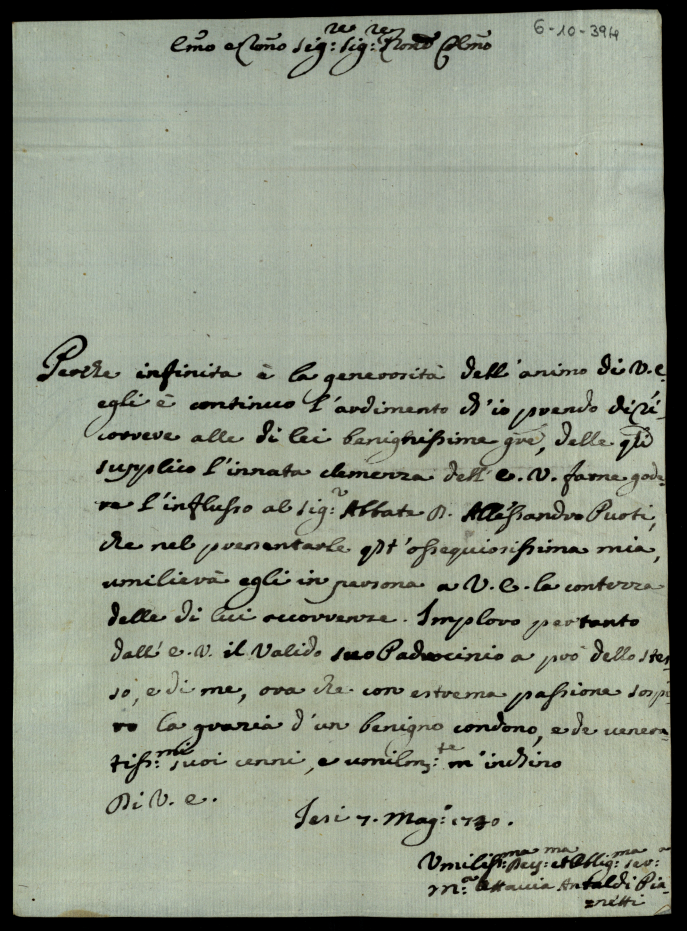 6-10-394
Emo e Rmo Sig:re Sig:re Prone Colmo
Perche infinita è la generosità dell'animo di V.E.
egli è continuo l'ardimento ch'io prendo di ri-
correre alle di lei benignissime gre, delle qli
supplico l'innata clemenza dell'E.V. farne gode-
re l'influsso al Sig:r Abbate D. Alessandro Puoti,
che nel presentarle qst'ossequiosissima mia,
umilierà egli in persona a V.E. la contezza
delle di lui occorrenze. Imploro pertanto
dall'E.V. il Valido suo Padrocinio a prò dello stes-
so, e di me, ora che con estrema passione sospi-
ro la grazia d'un benigno condono, e de venera-
tiss:mi suoi cenni, e umilm:te m'inchino
Di V.E.
Jesi 7. Mag:o 1730.
Umiliss:ma Dev:ma et Obblig:ma Ser:a
M:a Ottavia Antaldi Pia-
netti